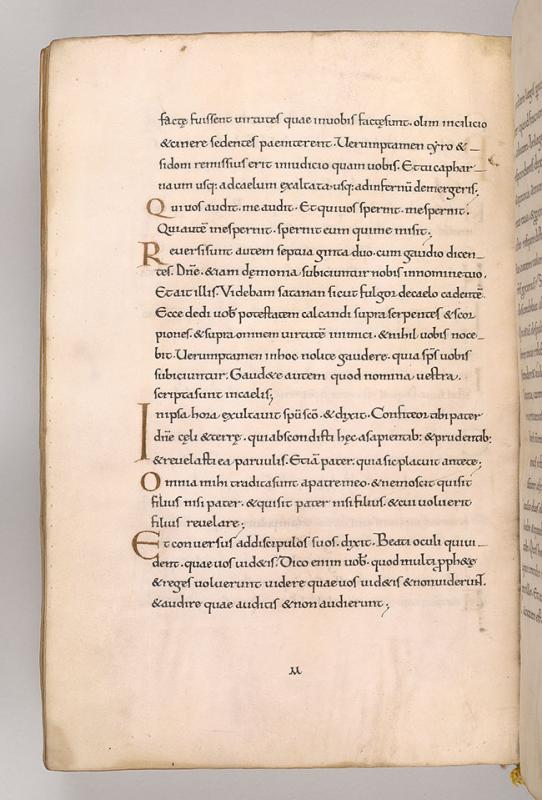 factę fuissent uirtutes quae inuobis factęsunt. olim incilicio
&cinere sedentes paeniterent. Uerumptamen tyro &
sidoni remissius erit iniudicio quam uobis. Et tu caphar
naum usq; adcaelum exaltata. usq; adinfernū demergeris;
Qui uos audit. me audit. Et qui uos spernit. me spernit.
Qui autē me spernit. spernit eum qui me misit;
Reuersi sunt autem septua ginta duo. cum gaudio dicen
tes. Dn̄e. &iam demonia subiciuntur nobis innomine tuo.
Et ait illis. Videbam satanan sicut fulgor decaelo cadentē.
Ecce dedi uob̄ potestatem calcandi supra serpentes &scor
piones. &supra omnem uirtutē inimici. &nihil uobis noce
bit. Uerumptamen inhoc nolite gaudere. quia sp̄s uobis
subiciuntur. Gaud&e autem quod nomina uestra.
scripta sunt incaelis;
In ipsa hora exultauit sp̄u sc̄o. & dixit. Confiteor tibi pater
dn̄e cęli &terrę. qui abscondisti hęc asapientib: &prudentib:
&reuelasti ea paruulis. Etiā pater. quia sic placuit ante te;
Omnia mihi tradita sunt apatre meo. &nemo scit qui sit
filius nisi pater. &quis sit pater nisi filius. &cui uoluerit
filius reuelare;
Et conuersus addiscipulos suos. dixit. Beati oculi qui ui
dent. quae uos uid&is. Dico enim uob̄. quod multi pph&ę
&reges uoluerunt uidere quae uos uid&is &non uiderunt.
&audire quae auditis &non audierunt;